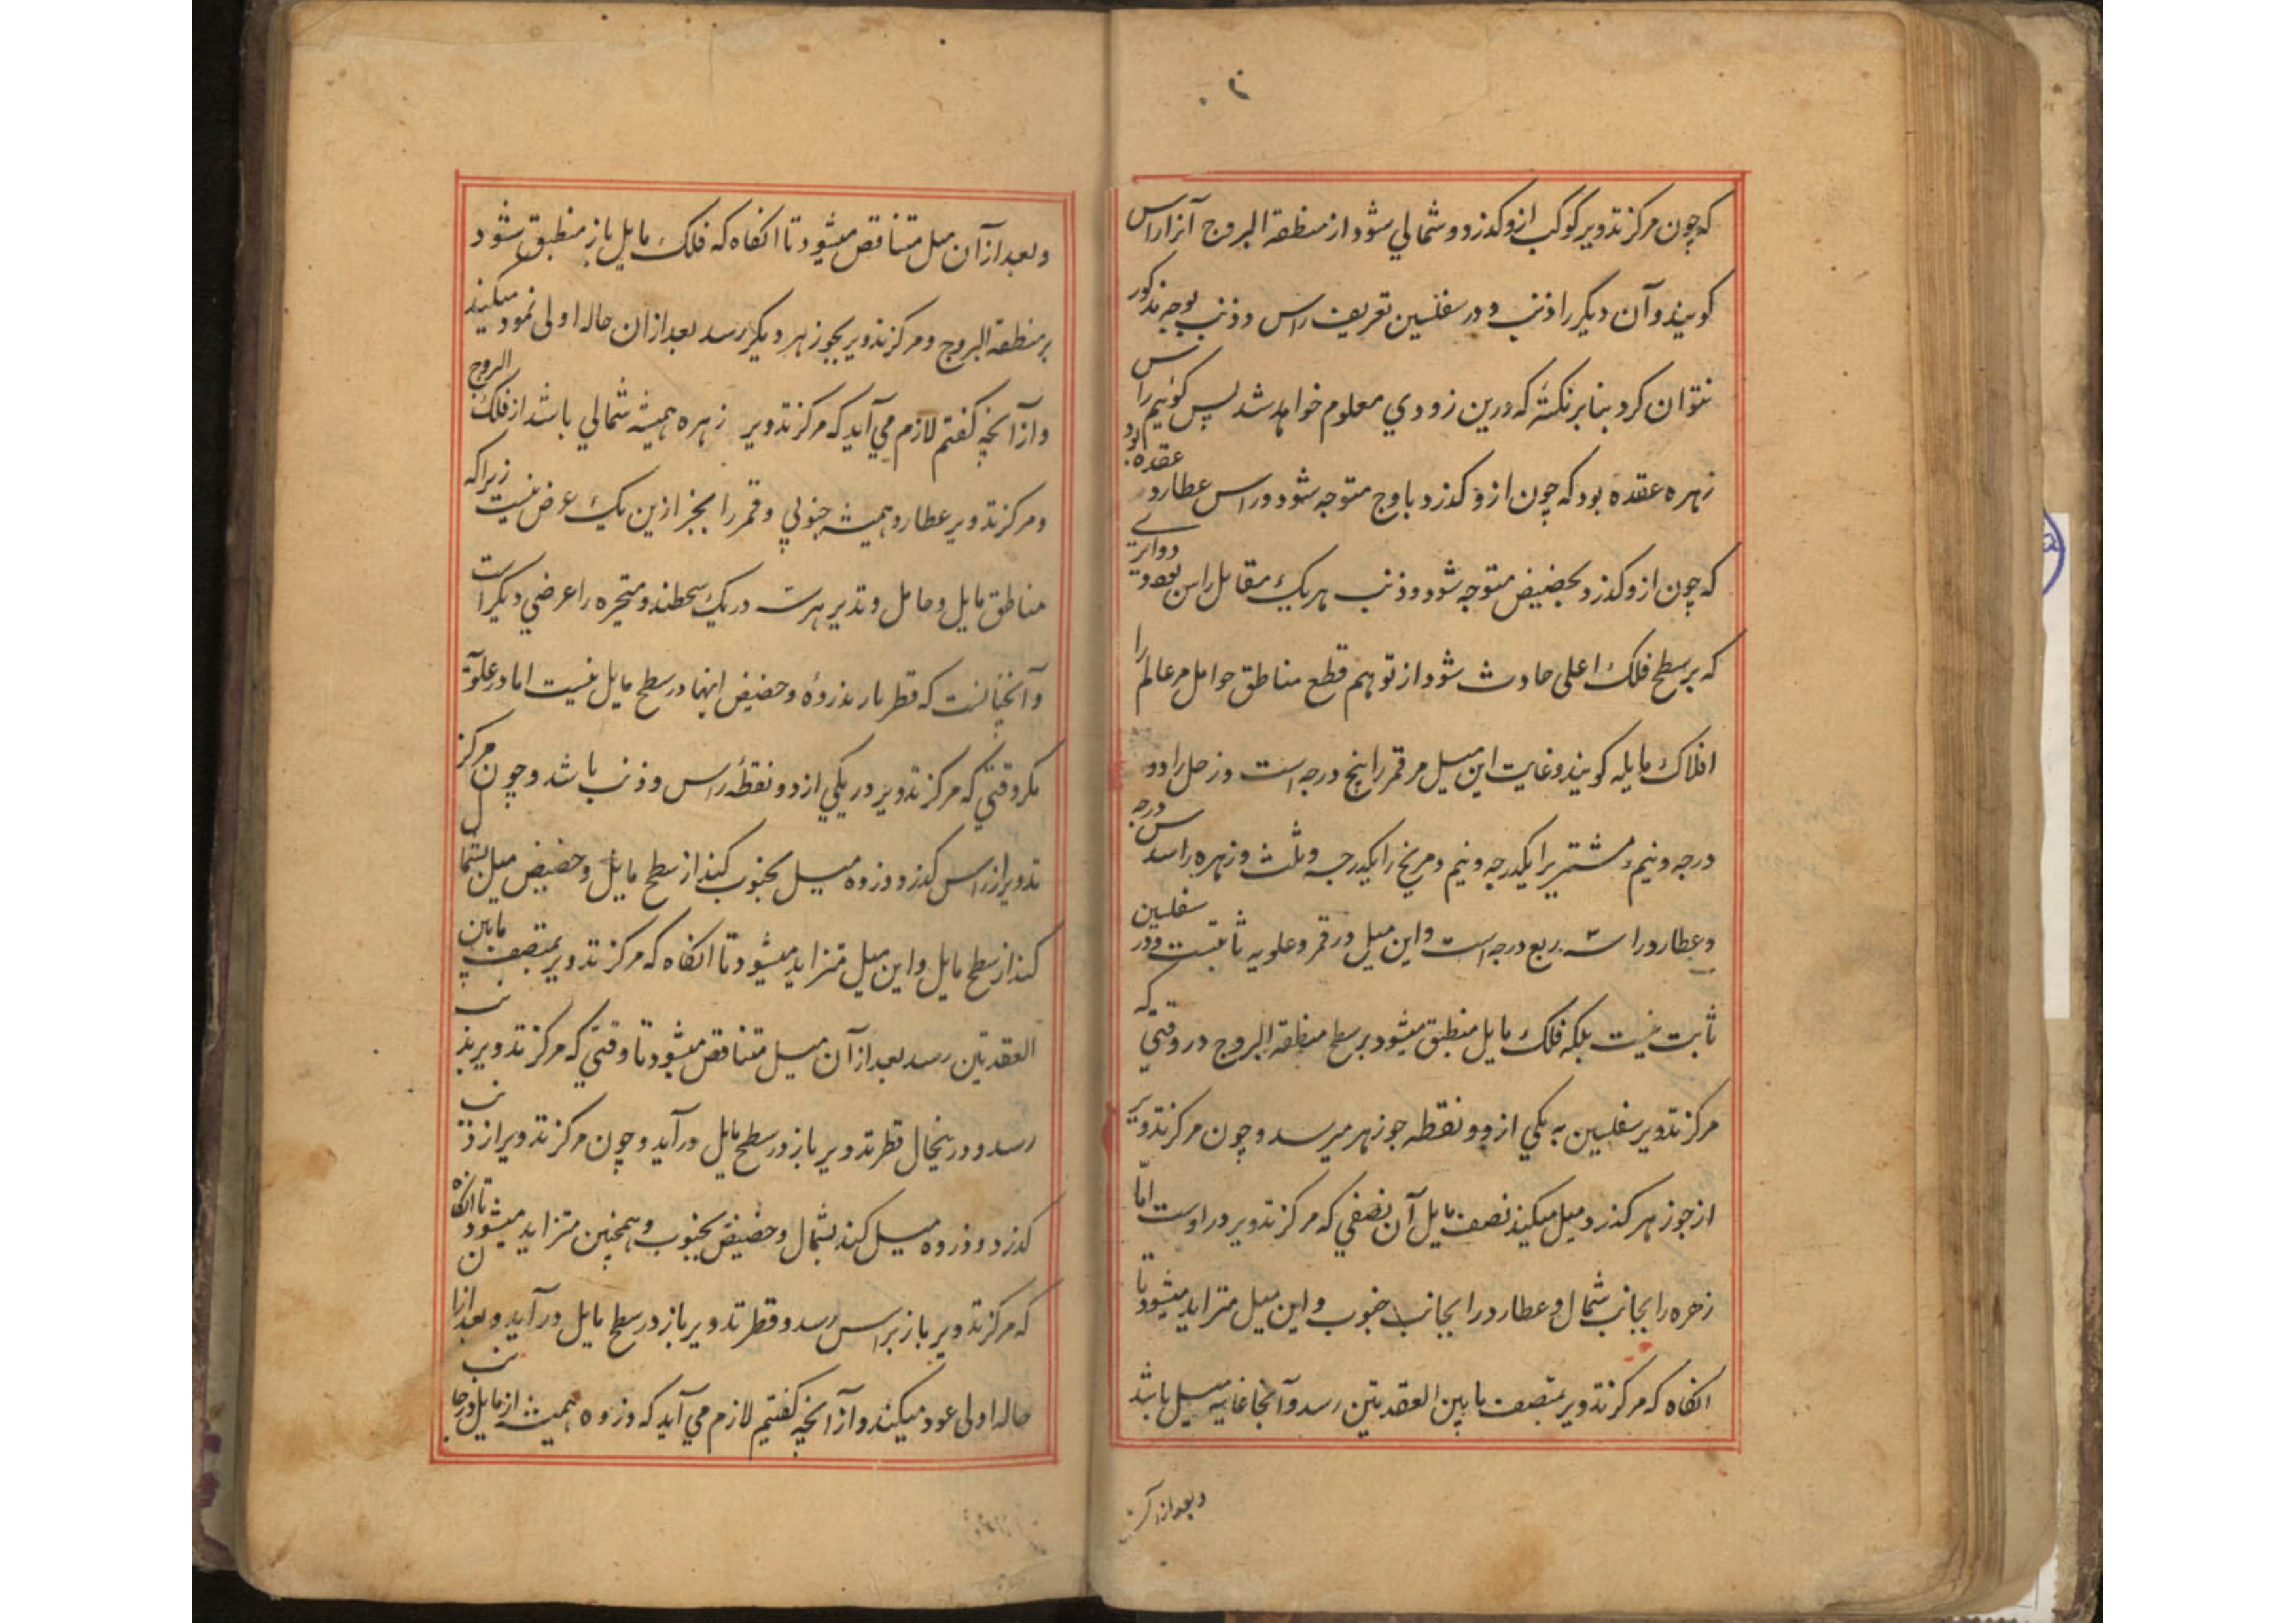 که چون مرکز تدویر کوکب ازو کذرد و شمالي شود از منطقة البروج آنرا راس
کویند وآن دیکر را ذنب و در سفلیین تعریف راس و ذنب بوجه مذکور
نتوان کرد بنا بر نکتهٔ که درین زودي معلوم خواهد شد پس کوئیم راس
زهره عقده بود که چون ازو کذرد باوج متوجه شود و راس عطارد عقده بود
که چون ازو کذرد بحضیض متوجه شود و ذنب هریک مقابل راس بود و دوایري
که بر سطح فلک اعلی حادث شود از توهم قطع مناطق حوامل مر عالم را
افلاک مایله کویند و غایت این میل مر قمر را پنج درجه است و زحل را دو
درجه و نیم و مشتریرا یکدرجه و نیم و مریخ را یکدرجه و ثلث و زهره را سدس درجه
و عطارد را سه ربع درجه است و این میل در قمر و علویه ثابتست و در سفلیین
ثابت نیست بلکه فلک مایل منطبق میشود بر سطح منطقة البروج در وقتي که
مرکز تدویر سفلیین به یکي از دو نقطه جوزهر میرسد و چون مرکز تدویر
از جوزهر کذرد میل میکیند نصف مایل آن نصفي که مرکز تدویر در اوست امّا
زهره را بجانب شمال و عطارد را بجانب جنوب و این میل متزاید میشود تا
انکاه که مرکز تدویر بمنتصف ما بین العقدتین رسد و آنجا غایه میل باشد
و بعد از آن
و بعد از آن میل متناقص میشود تا انکاه که فلک مایل باز منطبق شود
بر منطقة البروج و مرکز تدویر بجوزهر دیکر رسد بعد ازان حاله اولی نمود میکیند
و از آنچه کفتم لازم مي آید که مرکز تدویر زهره همیشه شمالي باشد از فلک البروج
و مرکز تدویر عطارد همیشه جنوبي و قمر را بجز ازین یک عرض نیست زیرا که
مناطق مایل و حامل و تدیر هر سه در یک سطحند و متحیره را عرضي دیکر است
و آنچنانست که قطر مار بذروهٔ و حضیض اینها در سطح مایل نیست اما در علویّة
مکر وقتي که مرکز تدویر در یکي از دو نقطهٔ راس و ذنب باشد و چون مرکز
تدویر از راس کذرد و ذروه میل بجنوب کیند از سطح مایل و حضیض میل بشمال
کند از سطح مایل و این میل متزاید میشود تا انکاه که مرکز تدویر بمنتصف مابین
العقدتین رسد بعد از آن میل متناقص میشود تا وقتي که مرکز تدویر بذنب
رسد و درینحال قطر تدویر باز در سطح مایل درآید و چون مرکز تدویر از ذنب
کذرد و ذروه میل کند بشمال و حضیض بجنوب و همچنین متزاید میشود تا انکاه
که مرکز تدویر باز براس رسد و قطر تدویر باز در سطح مایل در آید و بعد ازان
حاله اولی عود میکیند و از آنچه کفتیم لازم مي آید که ذروه همیشه از مایل در جانب